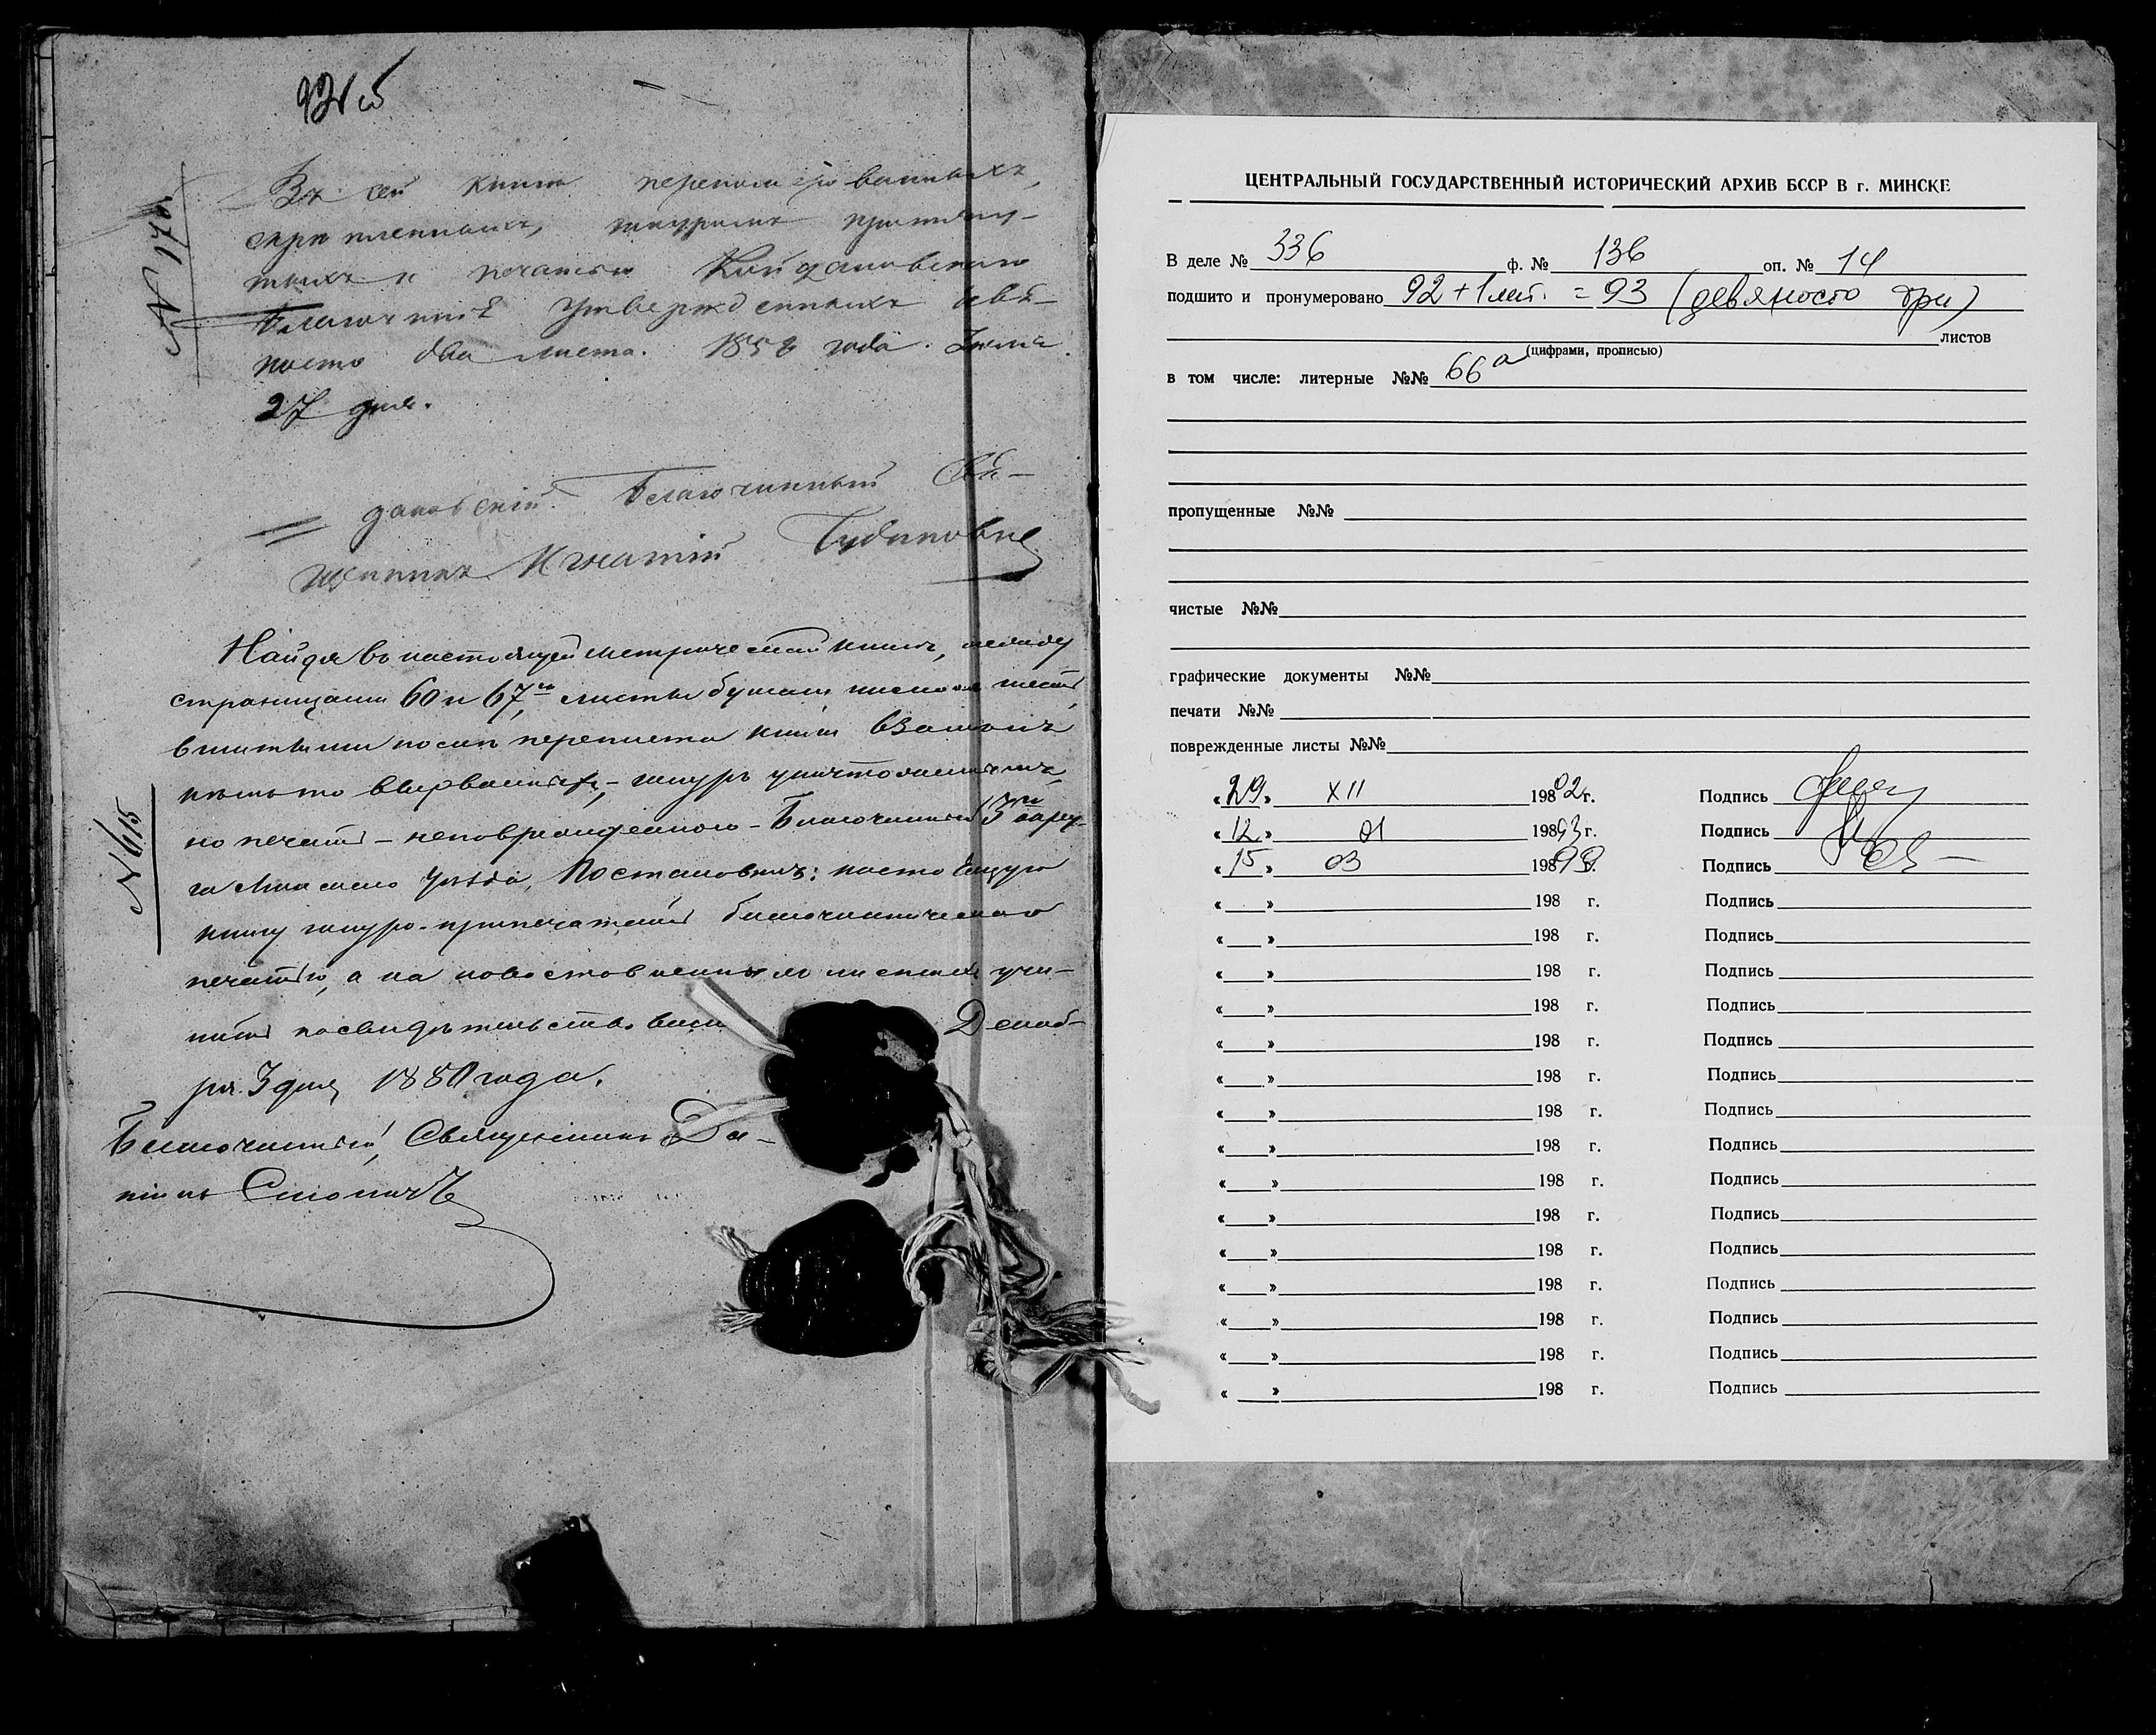 92 об
№ 1276
Въ сей книгѣ перенумерованныхъ,
скрѣпленныхъ, шнуромъ притяну-
тыхъ и печатью Койдановскаго
Благочинія утвержденныхъ девя-
носто два листа. 1858 года. Іюля
27 дня.
дановскій Благочинный Свя-
щенникъ Игнатій
Найдя въ настоящей метрической книгѣ, между
страницами 60 и 67, листы бумаги числомъ шесть
вшитыми послѣ переплета книги взамѣнъ
вырванныхъ, – шнуръ уничтоженнымъ
но печать – неповрежденною – Благочинный 3го окру-
га Минскаго Уѣзда, Постановилъ: настоящую
книгу шнуро-припечатать благочинническою
печатью, а на новоставленныхъ листахъ учи-
нить Декаб-
ря 3 дня 1880 года.
Благочинный, Священникъ Да-
№ 615
ЦЕНТРАЛЬНЫЙ ГОСУДАРСТВЕННЫЙ ИСТОРИЧЕСКИЙ АРХИВ БССР В г. МИНСКЕ
В деле № 336 ф. № 136 оп. № 14
подшито и пронумеровано 92 + 1 лит. = 93 (девяносто три)
листов
(цифрами, прописью)
в том числе: литерные №№ 66а
пропущенные №№
чистые №№
графические документы №№
печати №№
поврежденные листы №№
« 29 » XII 198 02 г. Подпись
« 12 » 01 198 93 г. Подпись
« 15 » 03 198 98 г. Подпись
« » 198 г. Подпись
« » 198 г. Подпись
« » 198 г. Подпись
« » 198 г. Подпись
« » 198 г. Подпись
« » 198 г. Подпись
« » 198 г. Подпись
« » 198 г. Подпись
« » 198 г. Подпись
« » 198 г. Подпись
« » 198 г. Подпись
« » 198 г. Подпись
« » 198 г. Подпись
« » 198 г. Подпись
« » 198 г. Подпись